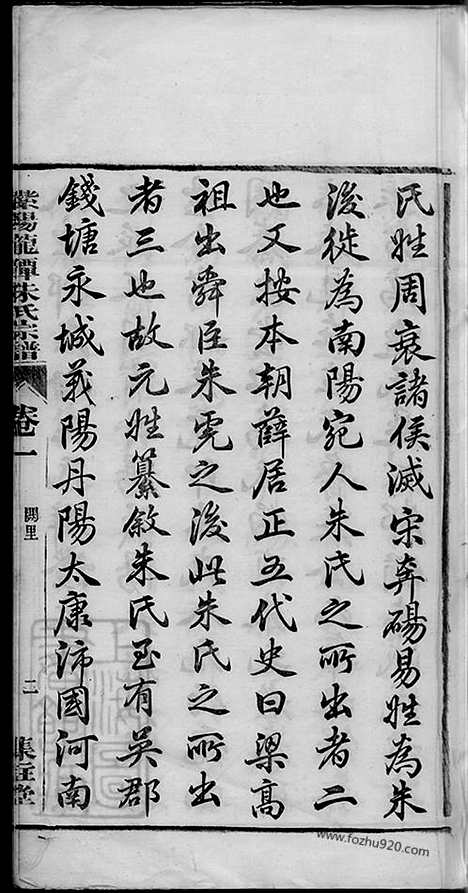 氏姓周衰諸侯滅宋奔碭易姓為朱
後徙為南陽宛人朱氏之所出者二
也又按本朝薛居正五代史曰梁高
祖出舜臣朱虎之後此朱氏之所出
者三也故元姓纂敘朱氏望有吳郡
錢塘永城義陽丹陽太康沛國河南
紫陽龍潭朱氏宗譜
卷一
闕里
二
www.fozhu920.com